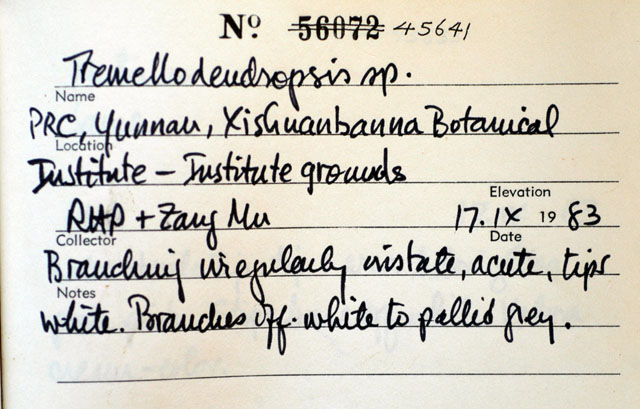 Nº 56072 45641
Tremellodendropsis sp.
Name
PRC, Yunnan, Xishuanbanna Botanical
Location
Institute – Institute grounds
Elevation
RHP + Zang Mu 17.IX 1983
Collector Date
Branching irregularly cristate, acute, tips
Notes
white. Branches off-white to pallid grey.